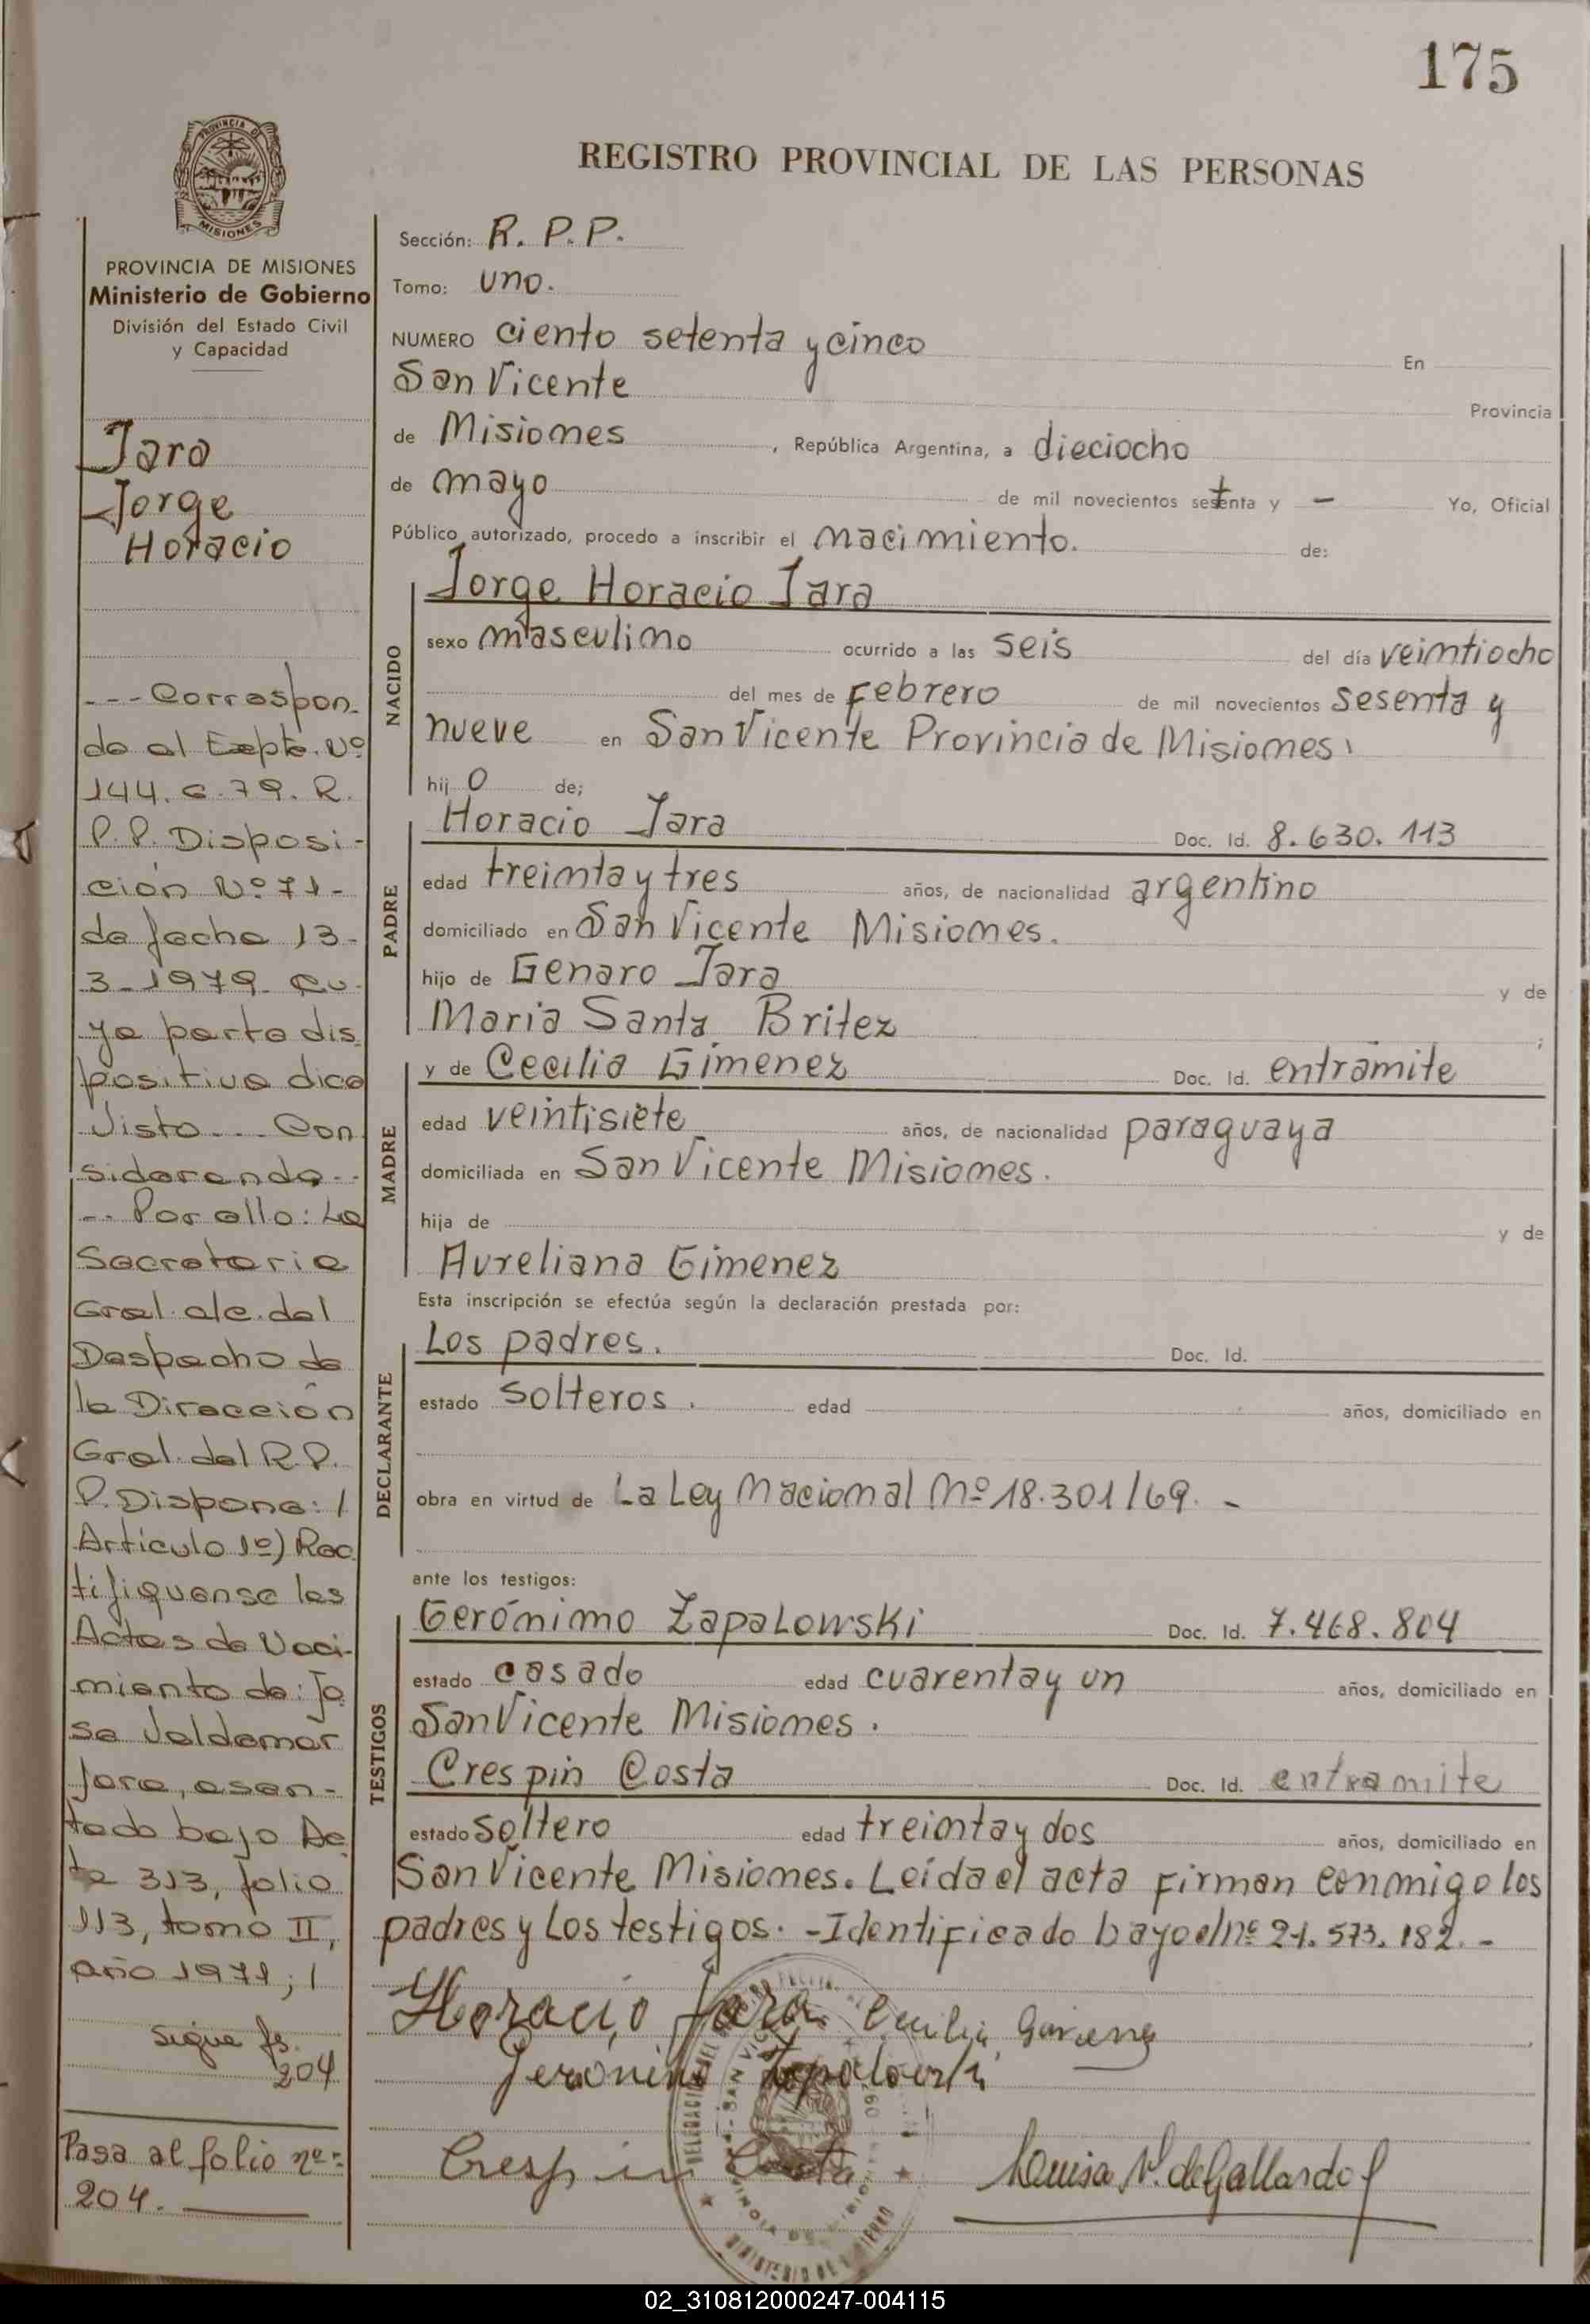 175
REGISTRO PROVINCIAL DE LAS PERSONAS
PROVINCIA DE MISIONES
PROVINCIA DE MISIONES
Ministerio de Gobierno
División del Estado Civil
y Capacidad
Jara
Jorge
Horacio
---Correspon-
de al Expte. Nº
144.G.79.R.
P.P. Disposi-
ción Nº 71-
de fecha 13-
3-1979- Cu-
ya parte dis
positiva dice
Visto... Con
siderando--
-- Por ello: La
Secretaria
Gral. a/c. del
Despacho de
la Dirección
Gral. del R.P.
P. Dispone: /
Artículo 1º) Rec
tifíquense las
Actas de Naci-
miento de: Jo
se Valdemar
Jara, asen-
tado bajo Ac
ta 313, folio
113, tomo II,
año 1971; /
sigue fs.
204
Pasa al folio nº:
204.
Sección: R. P. P.
Tomo: uno.
NUMERO ciento setenta y cinco En
San Vicente Provincia
de Misiones, República Argentina, a dieciocho
de mayo de mil novecientos setenta y - Yo, Oficial
Público autorizado, procedo a inscribir el nacimiento. de:
NACIDO
Jorge Horacio Jara
sexo masculino ocurrido a las seis del día veintiocho
del mes de Febrero de mil novecientos sesenta y
nueve en San Vicente Provincia de Misiones.
hij o de;
PADRE
Horacio Jara Doc. Id. 8.630.113
edad treinta y tres años, de nacionalidad argentino
domiciliado en San Vicente Misiones.
hijo de Genaro Jara y de
Maria Santa Britez ;
MADRE
y de Cecilia Gimenez Doc. Id. entramite
edad veintisiete años, de nacionalidad paraguaya
domiciliada en San Vicente Misiones.
hija de y de
Aureliana Gimenez
Esta inscripción se efectúa según la declaración prestada por:
DECLARANTE
Los padres. Doc. Id.
estado solteros. edad años, domiciliado en
obra en virtud de La Ley Nacional Nº 18.301/69. -
ante los testigos:
TESTIGOS
Gerónimo Zapalowski Doc. Id. 7.468.804
estado casado edad cuarenta y un años, domiciliado en
San Vicente Misiones.
Crespin Costa Doc. Id. entramite
estado soltero edad treinta y dos años, domiciliado en
San Vicente Misiones. Leída el acta firman conmigo los
padres y los testigos. -Identificado bayo el nº 21.573.182.-
Horacio Jara Cecilia Gimenez
Jeronimo Zapalowski
Crespin Costa
Louisa N. de Gallardo
02_310812000247-004115